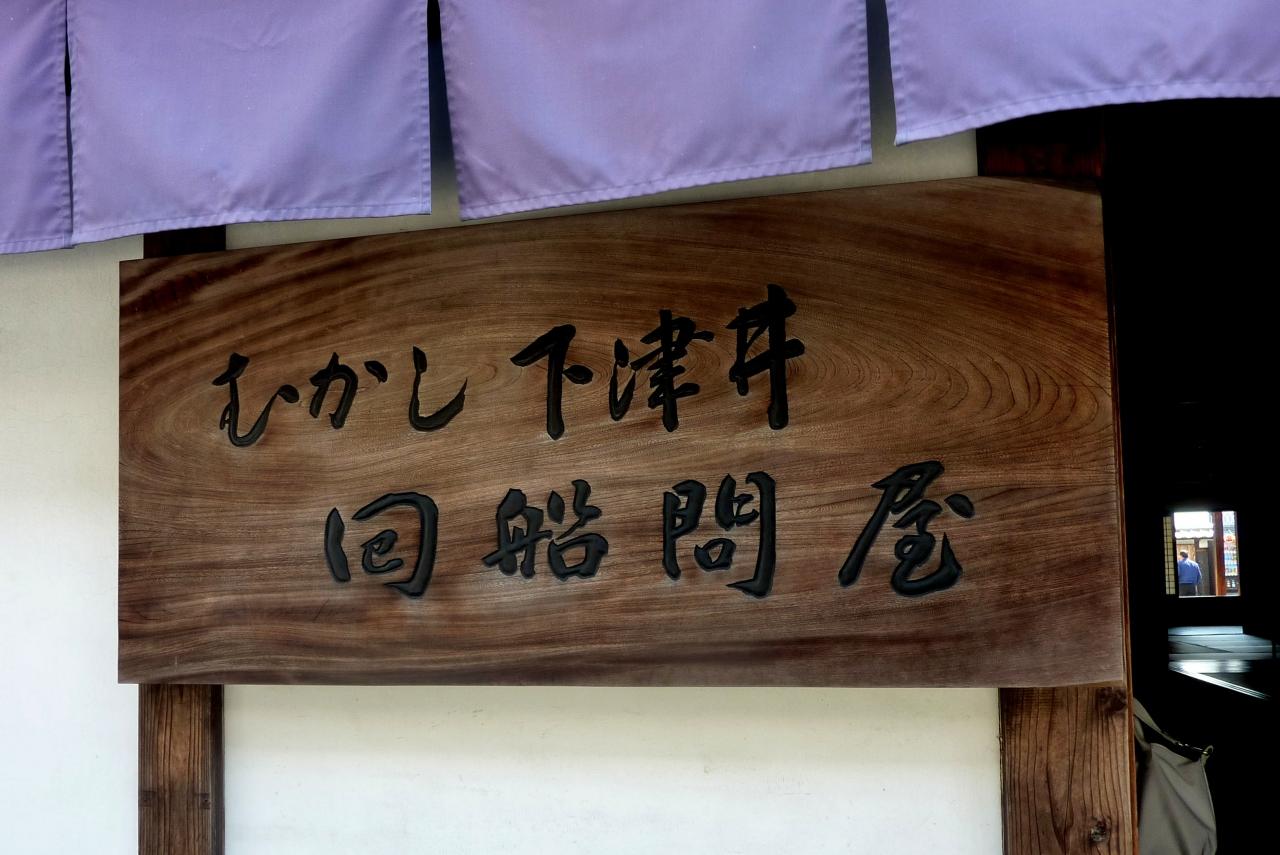 むかし下津井
回船問屋